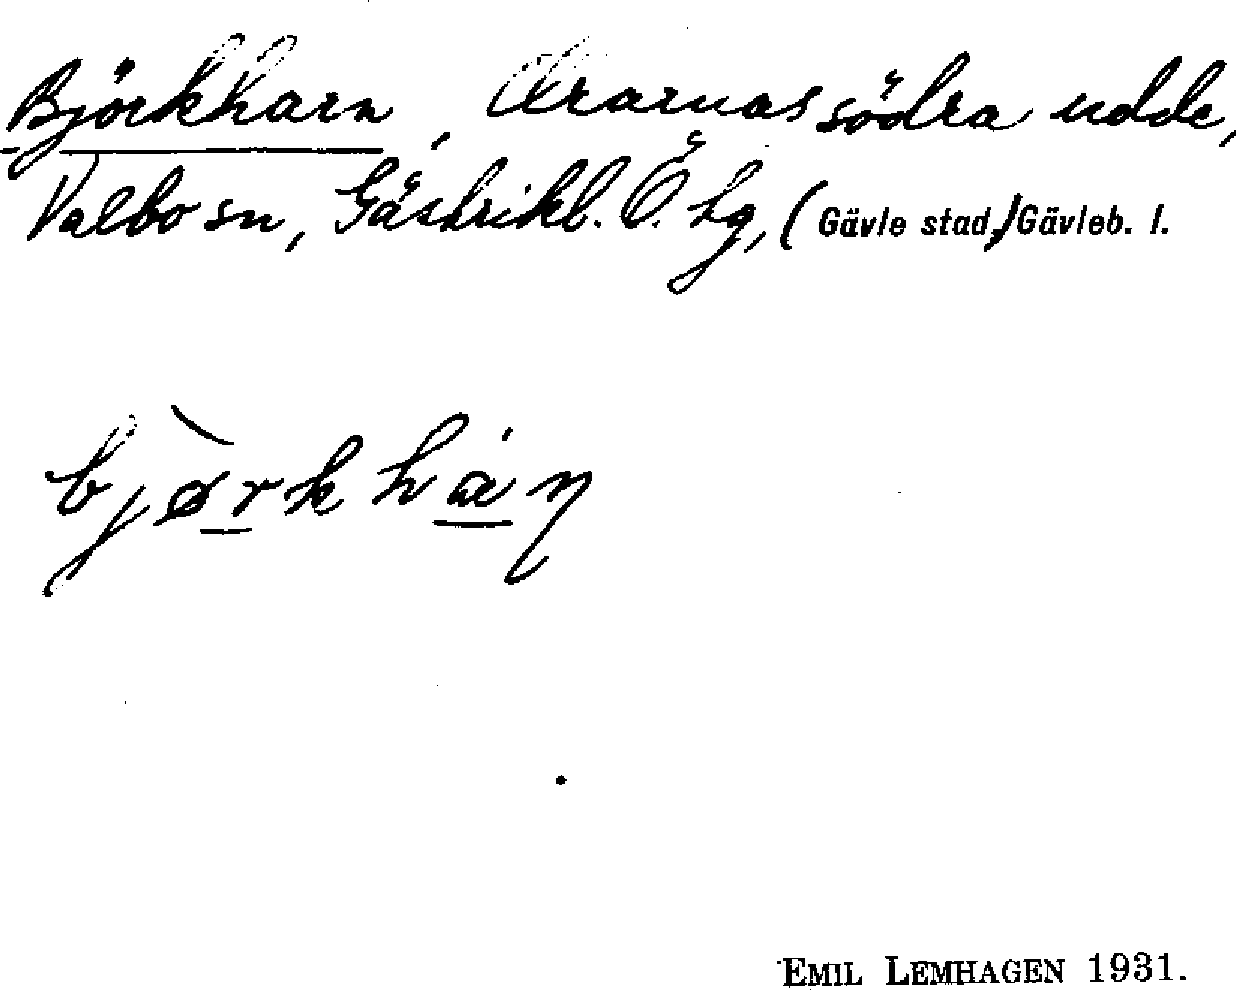 Björkharn, Orarnas södra udde,
Valbo sn, Gästrikl. Ö. Lg, (Gävle stad,) Gävleb. l.
bjørkhaꞑ
EMIL LEMHAGEN 1931.